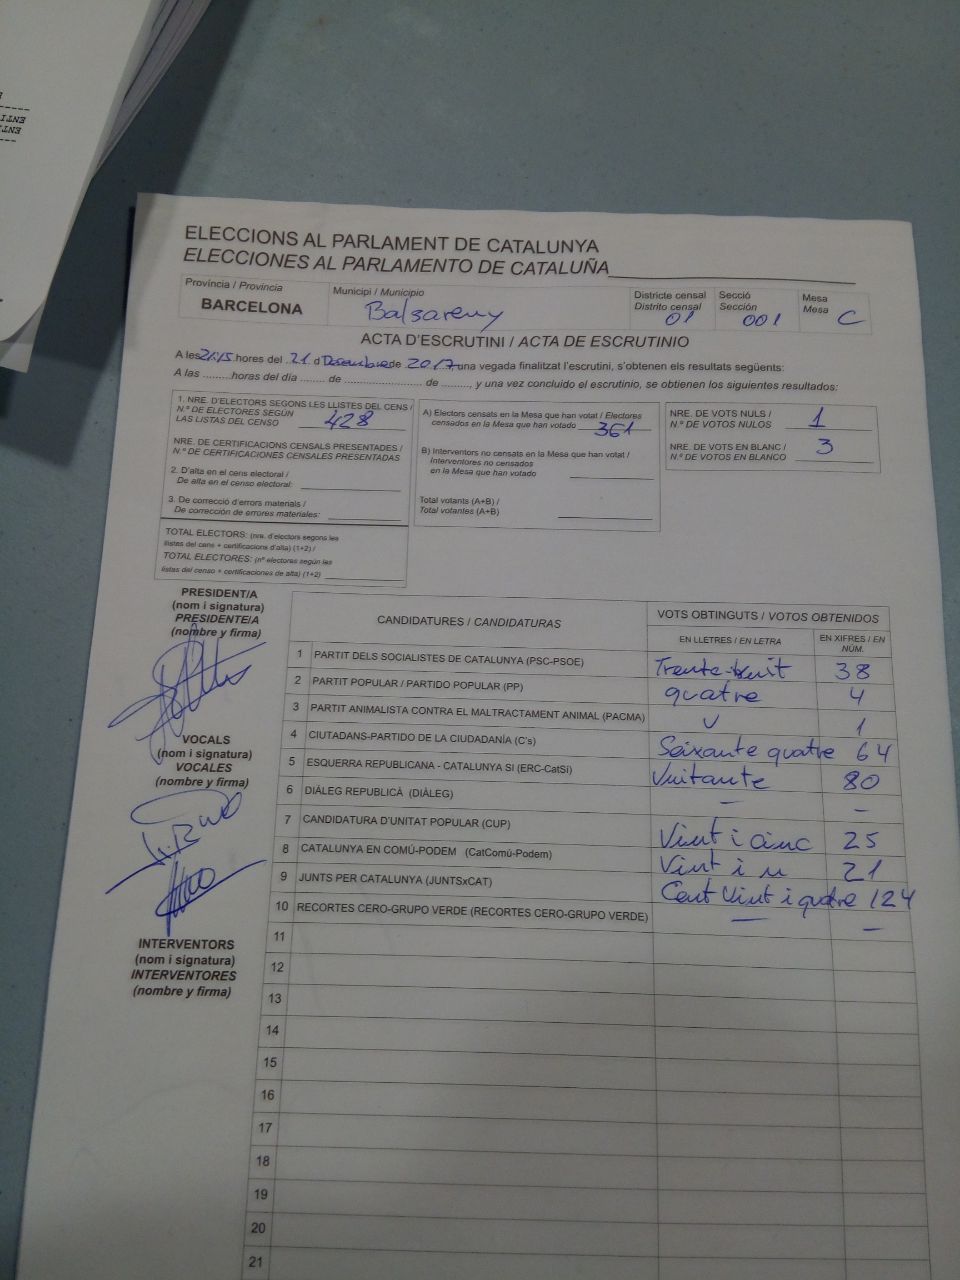 ELECCIONS AL PARLAMENT DE CATALUNYA
ELECCIONES AL PARLAMENTO DE CATALUÑA
Província / Provincia
BARCELONA
Municipi / Municipio
Balsareny
Districte censal
Distrito censal
01
Secció
Sección
001
Mesa
Mesa
C
ACTA D'ESCRUTINI / ACTA DE ESCRUTINIO
A les 21:15 hores del 21 d Desembre de 2017 una vegada finalitzat l'escrutini, s'obtenen els resultats següents:
A las .........horas del día ........ de ........................ de ........., y una vez concluido el escrutinio, se obtienen los siguientes resultados:
1. NRE. D'ELECTORS SEGONS LES LLISTES DEL CENS /
N.º DE ELECTORES SEGÚN
LAS LISTAS DEL CENSO 428
NRE. DE CERTIFICACIONS CENSALS PRESENTADES /
N.º DE CERTIFICACIONES CENSALES PRESENTADAS
2. D'alta en el cens electoral /
De alta en el censo electoral:
3. De correcció d'errors materials /
De corrección de errores materiales:
TOTAL ELECTORS: (nre. d'electors segons les
llistes del cens + certificacions d'alta) (1+2) /
TOTAL ELECTORES: (nº electores según las
listas del censo + certificaciones de alta) (1+2)
A) Electors censats en la Mesa que han votat / Electores
censados en la Mesa que han votado 361
B) Interventors no censats en la Mesa que han votat /
Interventores no censados
en la Mesa que han votado
Total votants (A+B) /
Total votantes (A+B)
NRE. DE VOTS NULS /
N.º DE VOTOS NULOS 1
NRE. DE VOTS EN BLANC /
N.º DE VOTOS EN BLANCO 3
PRESIDENT/A
(nom i signatura)
PRESIDENTE/A
(nombre y firma)
VOCALS
(nom i signatura)
VOCALES
(nombre y firma)
INTERVENTORS
(nom i signatura)
INTERVENTORES
(nombre y firma)
CANDIDATURES / CANDIDATURAS
VOTS OBTINGUTS / VOTOS OBTENIDOS
EN LLETRES / EN LETRA
EN XIFRES / EN NÚM.
1 PARTIT DELS SOCIALISTES DE CATALUNYA (PSC-PSOE) Trenta-buit 38
2 PARTIT POPULAR / PARTIDO POPULAR (PP) quatre 4
3 PARTIT ANIMALISTA CONTRA EL MALTRACTAMENT ANIMAL (PACMA) U 1
4 CIUTADANS-PARTIDO DE LA CIUDADANÍA (C's) Seixante quatre 64
5 ESQUERRA REPUBLICANA - CATALUNYA SI (ERC-CatSí) Vuitante 80
6 DIÀLEG REPUBLICÀ (DIÀLEG) — —
7 CANDIDATURA D'UNITAT POPULAR (CUP) Vint i cinc 25
8 CATALUNYA EN COMÚ-PODEM (CatComú-Podem) Vint i u 21
9 JUNTS PER CATALUNYA (JUNTSxCAT) Cent Vint i quatre 124
10 RECORTES CERO-GRUPO VERDE (RECORTES CERO-GRUPO VERDE) — —
11
12
13
14
15
16
17
18
19
20
21